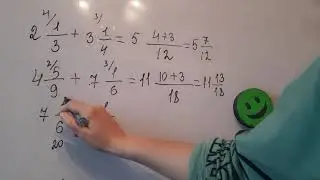 2 ⁴/1/3 + 3 ³/1/4 = 5 4+3/12 = 5 7/12
4 ²/5/9 + 7 ³/1/6 = 11 10+3/18 = 11 13/18
7
6
20